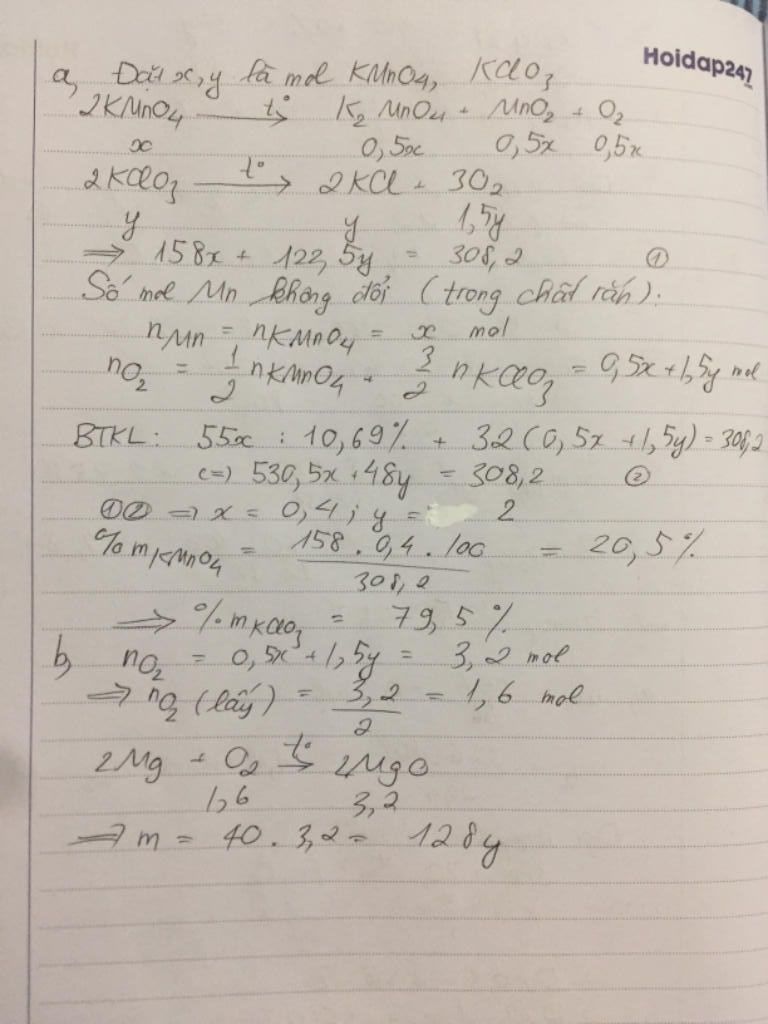 Hoidap247
a, Đặt x, y là mol KMnO4, KClO3
2KMnO4 --t°--> K2MnO4 + MnO2 + O2
x 0,5x 0,5x 0,5x
2KClO3 --t°--> 2KCl + 3O2
y y 1,5y
=> 158x + 122,5y = 308,2 ①
Số mol Mn không đổi (trong chất rắn):
nMn = nKMnO4 = x mol
nO2 = 1/2 nKMnO4 + 3/2 nKClO3 = 0,5x + 1,5y mol
BTKL: 55x : 10,69% + 32(0,5x + 1,5y) = 308,2
<=> 530,5x + 48y = 308,2 ②
①② => x = 0,4; y = 2
%mKMnO4 = 158 . 0,4 . 100 / 308,2 = 20,5%
=> %mKClO3 = 79,5%
b, nO2 = 0,5x + 1,5y = 3,2 mol
=> nO2 (lấy) = 3,2/2 = 1,6 mol
2Mg + O2 --t°--> 2MgO
1,6 3,2
=> m = 40 . 3,2 = 128g